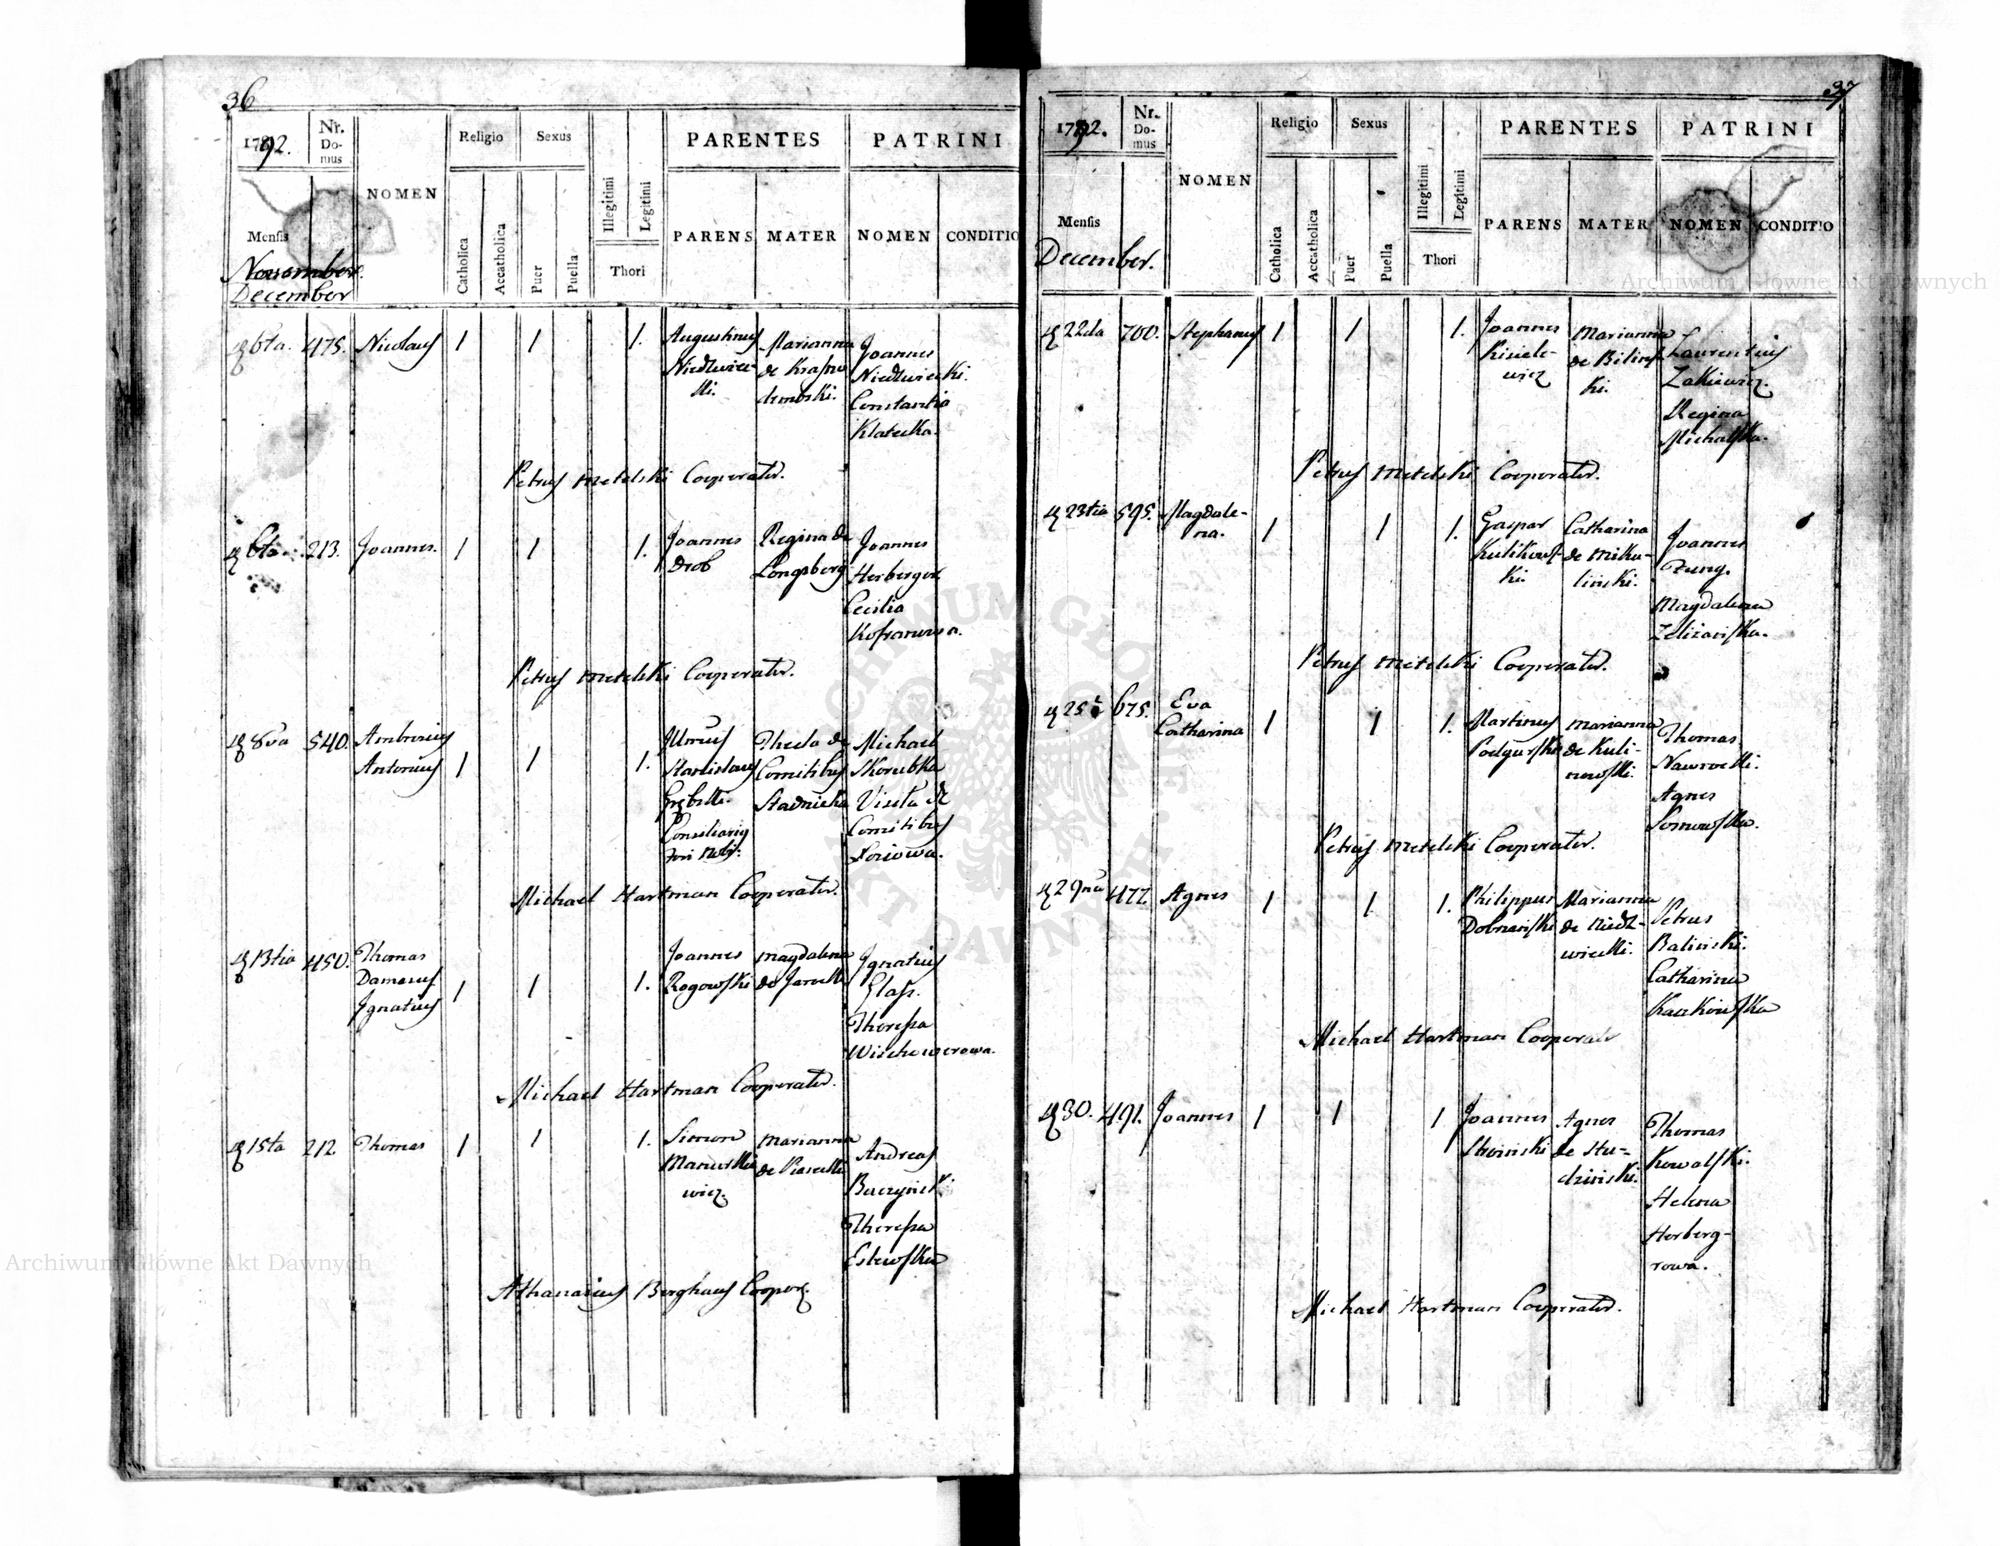 36
1792.
Nr.
Do-
mus
NOMEN
Religio
Sexus
PARENTES
PATRINI
Mensis
November.
December
Catholica
Accatholica
Puer
Puella
Illegitimi
Legitimi
Thori
PARENS
MATER
NOMEN
CONDITIO
6ta. 475. Nicolaus 1 1 1.
Augustinus
Niedzwiec-
ki.
Marianna
de Krasno
dembski.
Joannes
Niedzwiecki.
Constantia
Klatecka.
Petrus Metelski Cooperator.
6ta. 213. Joannes. 1 1 1.
Joannes
Drob
Regina de
Longsberg
Joannes
Herberger
Cecilia
Kofranowa.
Petrus Metelski Cooperator.
8va 540. Ambrosius
Antonius 1 1 1.
Stanislaus
Consiliarius
Thecla de
Comitibus
Stadnicka
Michael
Skorubka
de
Comitibus
Michael Hartman Cooperator.
13tia 450. Thomas
Damasus
Ignatius 1 1 1.
Joannes
Rogowski
Magdalena
de Jarocki
Ignatius
Glass.
Theressa
Michael Hartman Cooperator.
15ta 212 Thomas 1 1 1.
Simeon
wicz.
Marianna
de Piasecki
Andreas
Theressa
Athanasius Berghaus Cooper.
37
1792.
Nr.
Do-
mus
NOMEN
Religio
Sexus
PARENTES
PATRINI
Mensis
December.
Catholica
Accatholica
Puer
Puella
Illegitimi
Legitimi
Thori
PARENS
MATER
NOMEN
CONDITIO
22da 700. Stephanus 1 1 1.
Joannes
Kisiele-
wicz
Marianna
de Bilins-
ki.
Laurentius
Zakiewicz.
Regina
Michalska.
Petrus Metelski Cooperator.
23tia 595. Magdale-
na. 1 1 1.
Gaspar
Kulikows-
ki.
Catharina
de Miku-
linski.
Joannes
Magdalena
Petrus Metelski Cooperator.
25ta 675. Eva
Catharina 1 1 1.
Martinus
Podgurski
Marianna
de Kuli-
nowski.
Thomas
Nawrocki.
Agnes
Petrus Metelski Cooperator.
29na 477. Agnes 1 1 1.
Philippus
Dobrzanski
Marianna
de Niedz-
wiecki.
Petrus
Balinski.
Catharina
Kaczkowska
Michael Hartman Cooperator
30. 491. Joannes 1 1 1
Joannes
Agnes
de Stu-
dzinski.
Thomas
Kowalski.
Helena
Herberg-
rowa.
Michael Hartman Cooperator.
Archiwum Główne Akt Dawnych
Archiwum Główne Akt Dawnych
ARCHIWUM GŁÓWNE AKT DAWNYCH